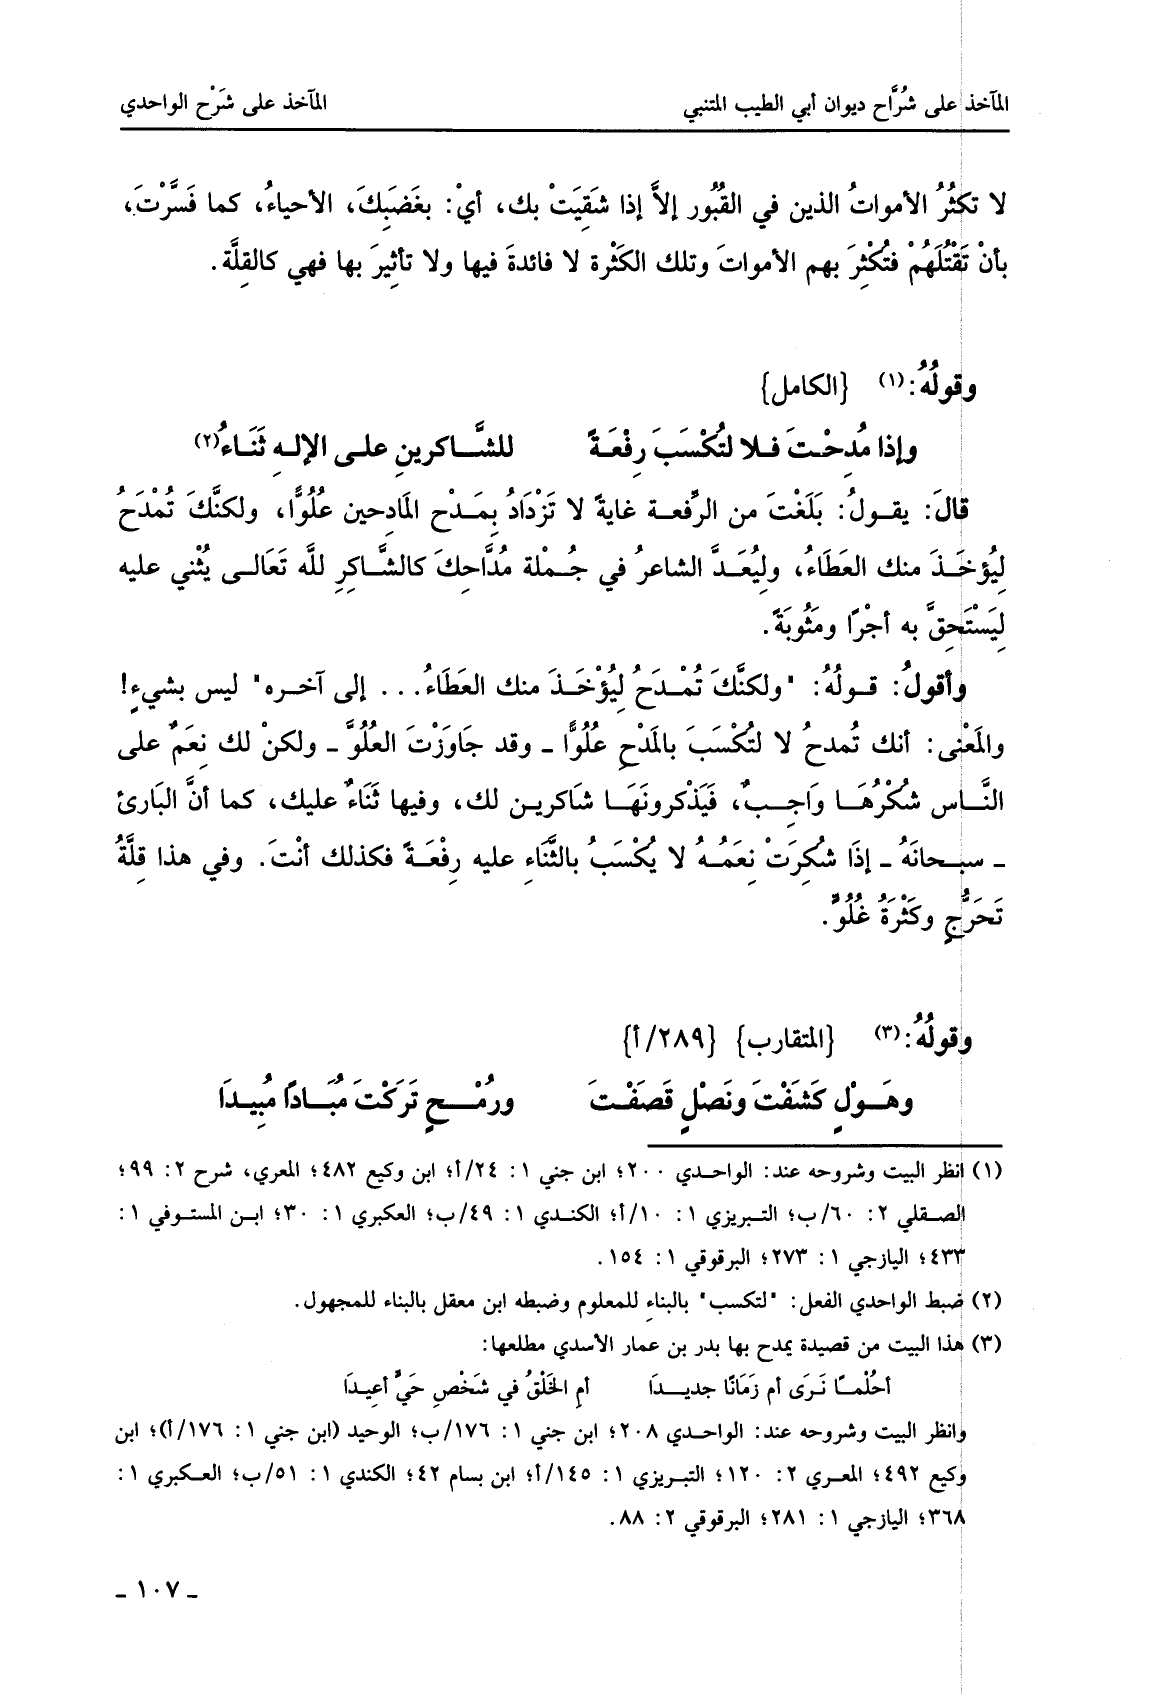 المآخذ على شُرَّاح ديوان أبي الطيب المتنبي المآخذ على شَرْح الواحدي
لا تكثُرُ الأمواتُ الذين في القُبُور إلاَّ إذا شَقِيَتْ بك، أيْ: بغَضَبِكَ، الأحياءُ، كما فَسَّرْتَ،
بأنْ تَقْتُلَهُمْ فتُكْثِرَ بهم الأمواتَ وتلك الكَثْرة لا فائدةَ فيها ولا تأثيرَ بها فهي كالقِلَّة.
وقولُهُ:(١) {الكامل}
وإذا مُدِحْتَ فلا لتُكْسَبَ رِفْعَةً للشَّاكرينِ على الإلهِ ثَنَاءُ(٢)
قالَ: يقولُ: بَلَغْتَ من الرِّفعة غايةً لا تَزْدَادُ بِمَدْحِ المَادِحين عُلُوًّا، ولكنَّكَ تُمْدَحُ
لِيُؤخَذَ منك العَطَاءُ، ولِيُعَدَّ الشاعرُ في جُمْلة مُدَّاحِكَ كالشَّاكِرِ للَّه تَعَالى يُثْني عليه
لِيَسْتَحِقَّ به أجْرًا ومَثُوبَةً.
وأقولُ: قولُهُ: "ولكنَّكَ تُمْدَحُ لِيُؤْخَذَ منك العَطَاءُ... إلى آخره" ليس بشيءٍ!
والمَعْنى: أنك تُمدحُ لا لتُكْسَبَ بالمَدْحِ عُلُوًّا ـ وقد جَاوَزْتَ العُلُوَّ ـ ولكنْ لك نِعَمٌ على
النَّاس شُكْرُهَا وَاجِبٌ، فَيَذْكرونَهَا شَاكرين لك، وفيها ثَنَاءٌ عليك، كما أنَّ البَارئ
ـ سبحانَهُ ـ إذَا شُكِرَتْ نِعَمُهُ لا يُكْسَبُ بالثَّنَاءِ عليه رِفْعَةً فكذلك أنْتَ. وفي هذا قِلَّةُ
تَحَرُّجٍ وكَثْرَةُ غُلُوٍّ.
وقولُهُ:(٣) {المتقارب} {٢٨٩/أ}
وهَوْلٍ كَشَفْتَ ونَصْلٍ قَصَفْتَ ورُمْحٍ تَرَكْتَ مُبَادًا مُبِيدَا
(١) انظر البيت وشروحه عند: الواحدي ٢٠٠؛ ابن جني ١: ٢٤/أ؛ ابن وكيع ٤٨٢؛ المعري، شرح ٢: ٩٩؛
الصقلي ٢: ٦٠/ب؛ التبريزي ١: ١٠/أ؛ الكندي ١: ٤٩/ب؛ العكبري ١: ٣٠؛ ابن المستوفي ١:
٤٣٣؛ اليازجي ١: ٢٧٣؛ البرقوقي ١: ١٥٤.
(٢) ضبط الواحدي الفعل: "لتكسب" بالبناءِ للمعلوم وضبطه ابن معقل بالبناء للمجهول.
(٣) هذا البيت من قصيدة يمدح بها بدر بن عمار الأسدي مطلعها:
أحُلْمًا نَرَى أم زَمَانًا جديدَا أمِ الخَلْقُ في شَخْصِ حَيٍّ أعيدَا
وانظر البيت وشروحه عند: الواحدي ٢٠٨؛ ابن جني ١: ١٧٦/ب؛ الوحيد (ابن جني ١: ١٧٦/أ)؛ ابن
وكيع ٤٩٢؛ المعري ٢: ١٢٠؛ التبريزي ١: ١٤٥/أ؛ ابن بسام ٤٢؛ الكندي ١: ٥١/ب؛ العكبري ١:
٣٦٨؛ اليازجي ١: ٢٨١؛ البرقوقي ٢: ٨٨.
ـ ١٠٧ ـ